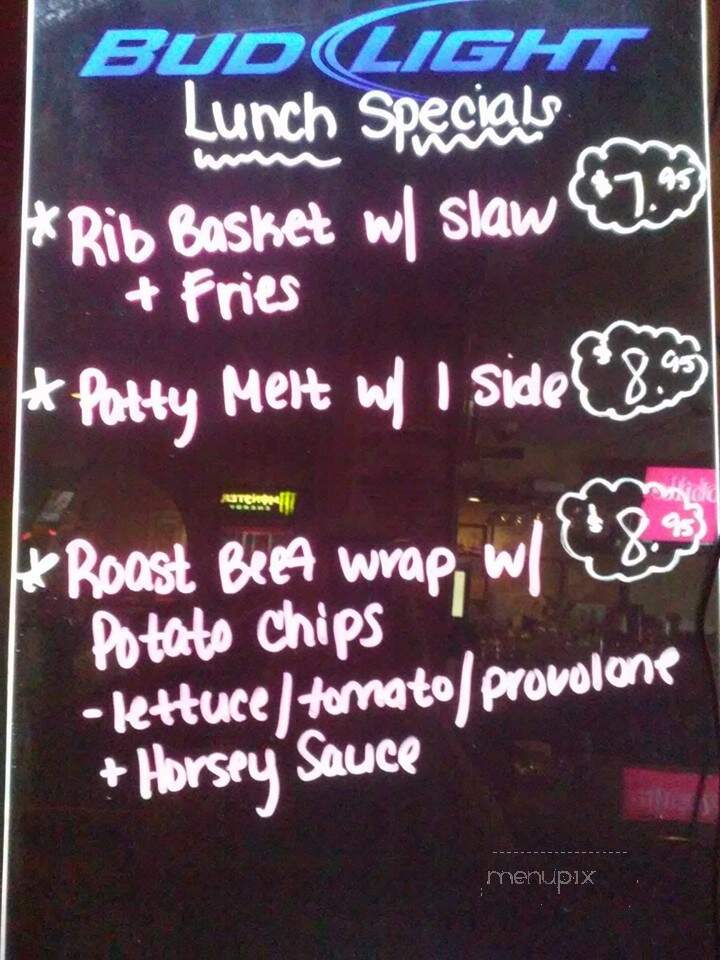 BUD LIGHT
Lunch Specials
* Rib Basket w/ slaw $7.95
+ Fries
* Patty Melt w/ 1 side $8.95
* Roast Beef wrap w/ $8.95
Potato chips
- lettuce/tomato/provolone
+ Horsey Sauce
menupix